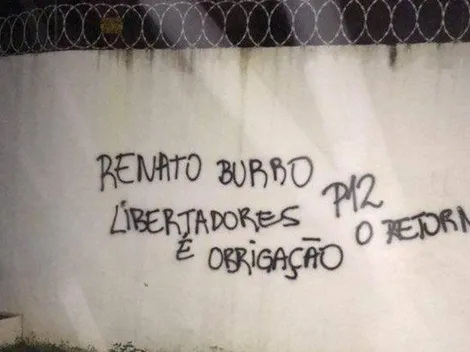 RENATO BURRO
LIBERTADORES
É OBRIGAÇÃO
P12
O RETORN